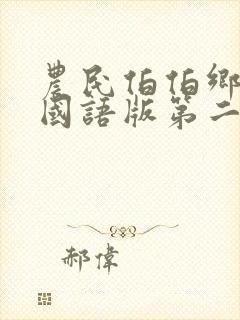 農民伯伯鄉
國語版第二
郝偉